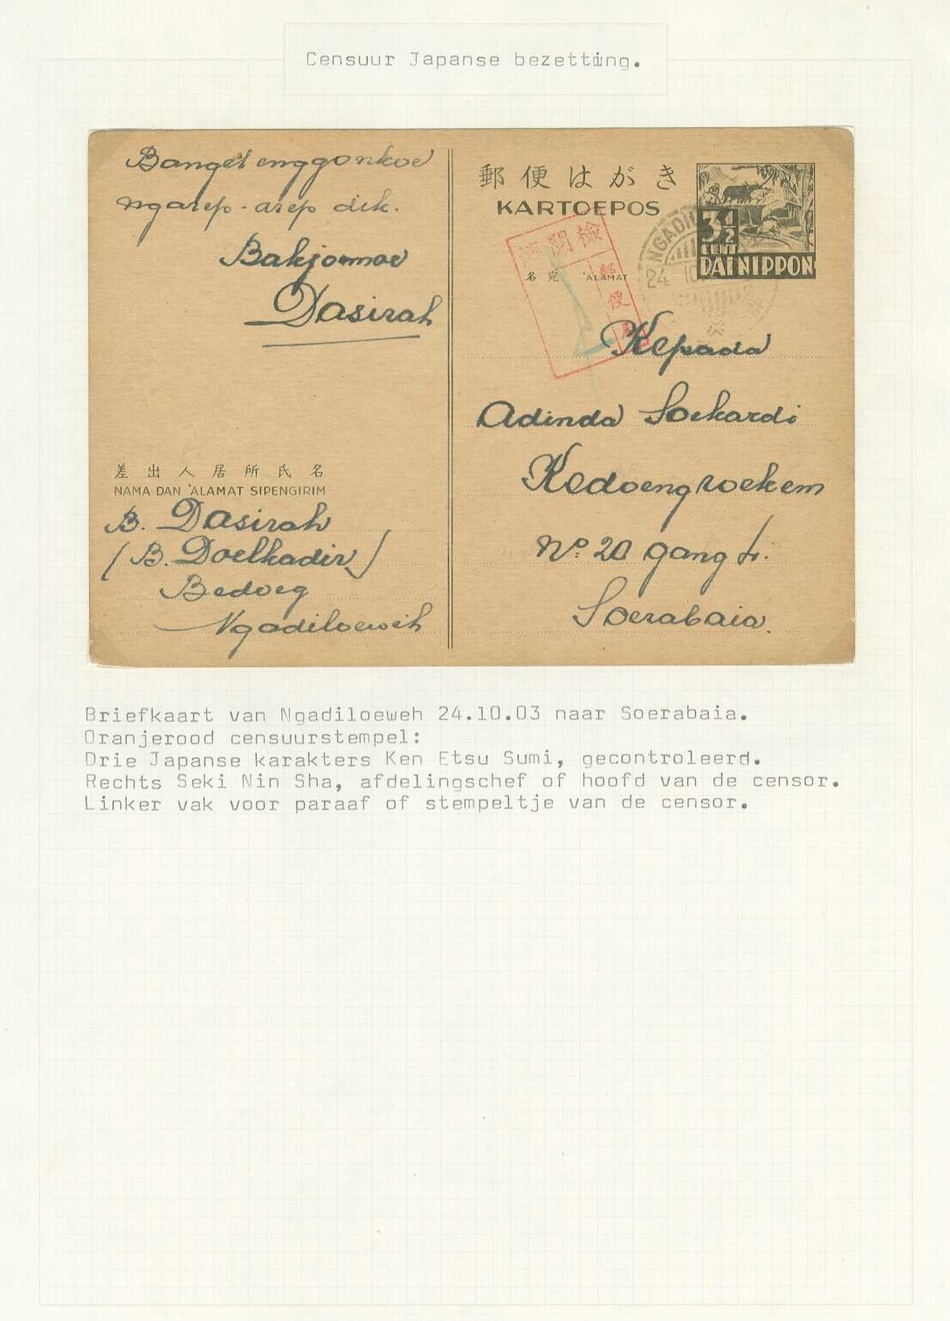 Censuur Japanse bezetting.
Banget enggonkoe
ngarep-arep dik.
Bakjomoe
Dasirah
差出人居所氏名
NAMA DAN 'ALAMAT SIPENGIRIM
B. Dasirah
(B. Doelkadir)
Bedoeg
Ngadiloewih
郵便はがき
KARTOEPOS
3½
CENT
DAI NIPPON
NGADIL
24 10
検閲済
郵便
名宛 'ALAMAT
Kepada
Adinda Soekardi
Kedoengroekem
No. 20 gang
Soerabaia.
Briefkaart van Ngadiloeweh 24.10.03 naar Soerabaia.
Oranjerood censuurstempel:
Drie Japanse karakters Ken Etsu Sumi, gecontroleerd.
Rechts Seki Nin Sha, afdelingschef of hoofd van de censor.
Linker vak voor paraaf of stempeltje van de censor.